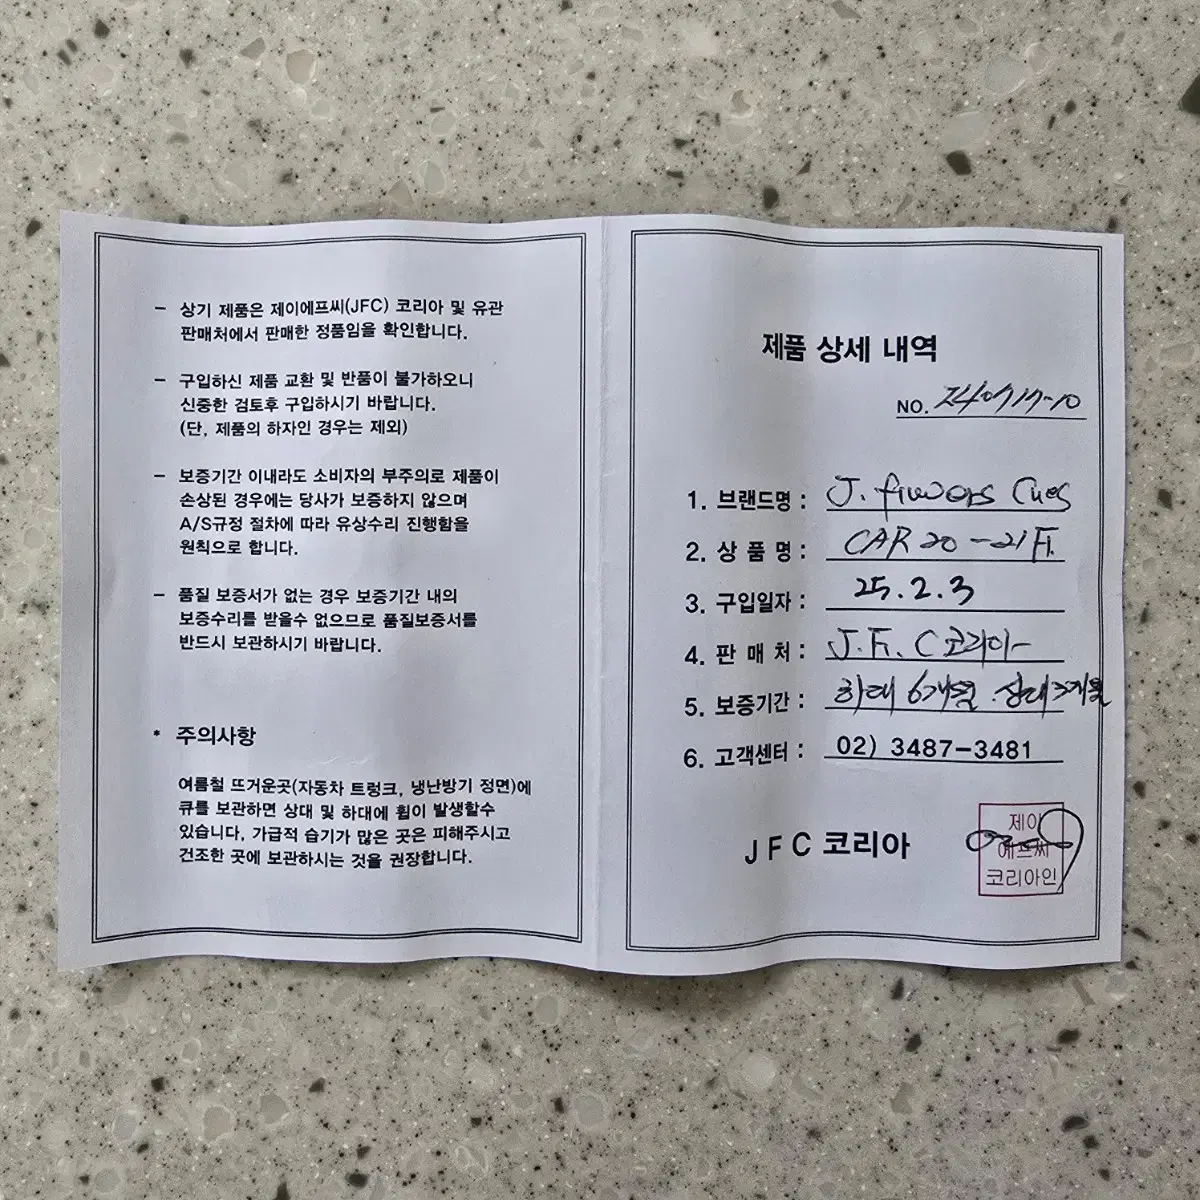 - 상기 제품은 제이에프씨(JFC) 코리아 및 유관
판매처에서 판매한 정품임을 확인합니다.
- 구입하신 제품 교환 및 반품이 불가하오니
신중한 검토후 구입하시기 바랍니다.
(단, 제품의 하자인 경우는 제외)
- 보증기간 이내라도 소비자의 부주의로 제품이
손상된 경우에는 당사가 보증하지 않으며
A/S규정 절차에 따라 유상수리 진행함을
원칙으로 합니다.
- 품질 보증서가 없는 경우 보증기간 내의
보증수리를 받을수 없으므로 품질보증서를
반드시 보관하시기 바랍니다.
* 주의사항
여름철 뜨거운곳(자동차 트렁크, 냉난방기 정면)에
큐를 보관하면 상대 및 하대에 휨이 발생할수
있습니다. 가급적 습기가 많은 곳은 피해주시고
건조한 곳에 보관하시는 것을 권장합니다.
제품 상세 내역
NO. 240717-10
1. 브랜드명 : J. Cues
2. 상 품 명 : CAR 20-21
3. 구입일자 : 25.2.3
4. 판 매 처 : J.F.C 코리아
5. 보증기간 : 하대 6개월. 상대 3개월
6. 고객센터 : 02) 3487-3481
JFC 코리아
제이
에프씨
코리아인